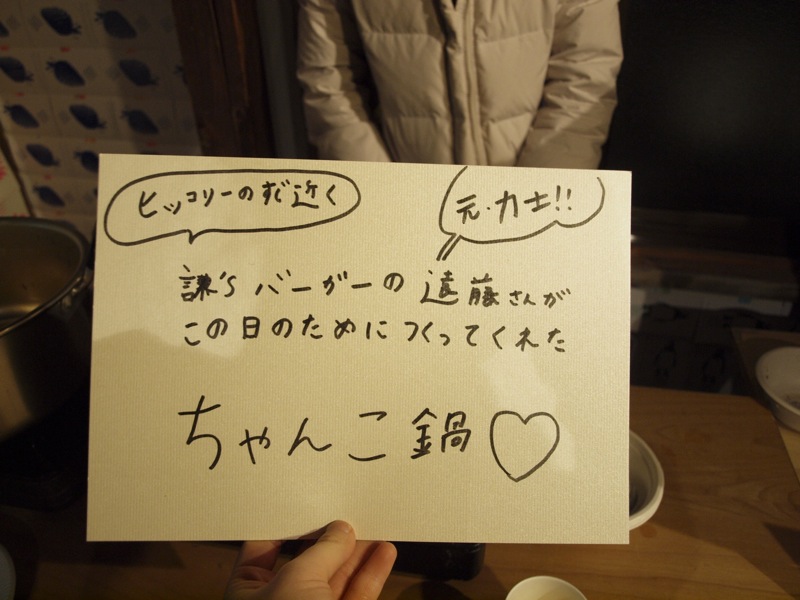 ヒッコリーのすぐ近く
元・力士!!
謙'sバーガーの遠藤さんが
この日のためにつくってくれた
ちゃんこ鍋♡